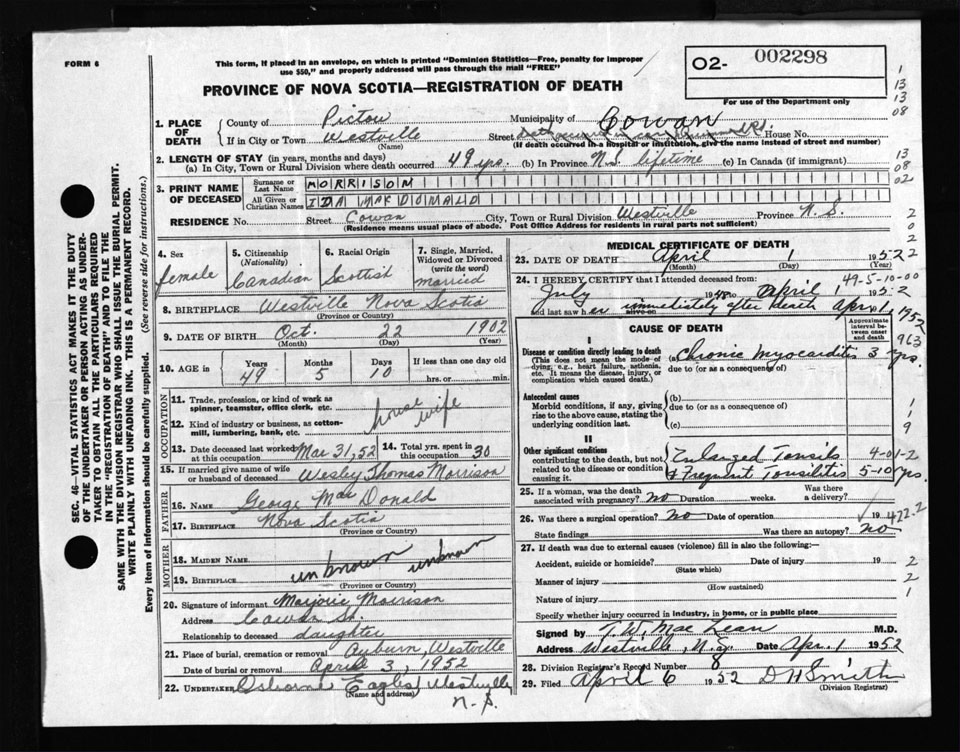 FORM 6
This form, if placed in an envelope, on which is printed "Dominion Statistics—Free, penalty for improper
use $50," and properly addressed will pass through the mail "FREE"
O2- 002298
For use of the Department only
PROVINCE OF NOVA SCOTIA—REGISTRATION OF DEATH
1. PLACE OF DEATH
County of Pictou Municipality of Cowan
If in City or Town Westville (Name) Street House No.
(If death occurred in a hospital or institution, give the name instead of street and number)
2. LENGTH OF STAY (in years, months and days)
(a) In City, Town or Rural Division where death occurred 49 yrs. (b) In Province N.S. lifetime (c) In Canada (if immigrant)
3. PRINT NAME OF DECEASED
Surname or Last Name MORRISON
All Given or Christian Names IDA MACDONALD
RESIDENCE No. Street Cowan City, Town or Rural Division Westville Province N.S.
(Residence means usual place of abode. Post Office Address for residents in rural parts not sufficient)
4. Sex female
5. Citizenship (Nationality) Canadian
6. Racial Origin Scottish
7. Single, Married, Widowed or Divorced (write the word) married
8. BIRTHPLACE Westville Nova Scotia
(Province or Country)
9. DATE OF BIRTH Oct. 22 1902
(Month) (Day) (Year)
10. AGE in Years 49 Months 5 Days 10 If less than one day old
hrs. or min.
OCCUPATION
11. Trade, profession, or kind of work as
spinner, teamster, office clerk, etc. house wife
12. Kind of industry or business, as cotton-
mill, lumbering, bank, etc.
13. Date deceased last worked at this occupation Mar 31, 52
14. Total yrs. spent in this occupation 30
15. If married give name of wife
or husband of deceased Wesley Thomas Morrison
FATHER
16. NAME George MacDonald
17. BIRTHPLACE Nova Scotia
MOTHER
18. MAIDEN NAME unknown
19. BIRTHPLACE unknown
(Province or Country)
20. Signature of informant Marjorie Morrison
Address Cowan St.
Relationship to deceased daughter
21. Place of burial, cremation or removal Auburn, Westville
Date of burial or removal April 3, 1952
22. UNDERTAKER Osborne Eagles Westville
(Name and address)
N.S.
MEDICAL CERTIFICATE OF DEATH
23. DATE OF DEATH April 1 1952
(Month) (Day) (Year)
24. I HEREBY CERTIFY that I attended deceased from:
49-5-10-00
July 1948 to April 1 1952
and last saw her alive on immediately after death April 1, 1952
CAUSE OF DEATH
Approximate interval between onset and death
I
Disease or condition directly leading to death
(This does not mean the mode of
dying, e.g., heart failure, asthenia,
etc. It means the disease, injury, or
complication which caused death.)
(a) Chronic Myocarditis 3 yrs.
due to (or as a consequence of)
Antecedent causes
Morbid conditions, if any, giving
rise to the above cause, stating the
underlying condition last.
(b)
due to (or as a consequence of)
(c)
II
Other significant conditions
contributing to the death, but not
related to the disease or condition
causing it.
Enlarged Tonsils 4-01-2
& Frequent Tonsilitis 5-10 yrs.
25. If a woman, was the death
associated with pregnancy? no Duration weeks. Was there a delivery?
422.2
26. Was there a surgical operation? no Date of operation 19
State findings Was there an autopsy? no
27. If death was due to external causes (violence) fill in also the following:—
Accident, suicide or homicide? Date of injury 19
(State which)
Manner of injury
(How sustained)
Nature of injury
Specify whether injury occurred in industry, in home, or in public place
Signed by T.W. MacLean M.D.
Address Westville, N.S. Date Apr. 1 1952
28. Division Registrar's Record Number 8
29. Filed April 6 1952 D H Smith
(Division Registrar)
SEC. 46—VITAL STATISTICS ACT MAKES IT THE DUTY
OF THE UNDERTAKER OR PERSON ACTING AS UNDER-
TAKER TO OBTAIN ALL THE PARTICULARS REQUIRED
IN THE "REGISTRATION OF DEATH" AND TO FILE THE
SAME WITH THE DIVISION REGISTRAR WHO SHALL ISSUE THE BURIAL PERMIT.
WRITE PLAINLY WITH UNFADING INK. THIS IS A PERMANENT RECORD.
Every item of information should be carefully supplied. (See reverse side for instructions.)
1
13
13
08
13
08
02
2
0
2
2
963
1
1
9
2
2
1